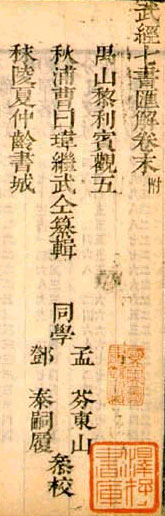 武經七書匯解卷末附
禺山黎利賓觀五
秋浦曹曰瑋繼武仝纂輯
秣陵夏仲齡書城
同學
孟芬東山
鄧泰嗣履
叅校
澤存書庫